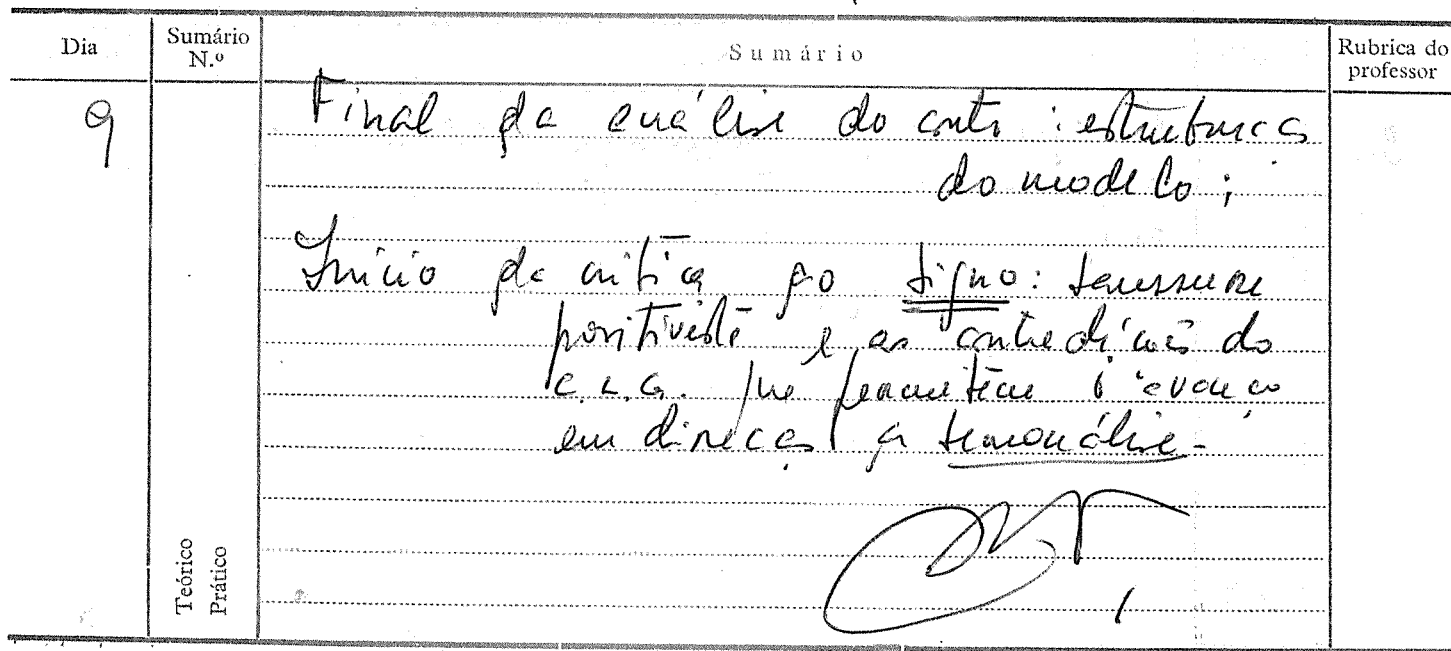 Dia
Sumário N.º
Sumário
Rubrica do professor
9
Final da análise do conto : estruturas
do modelo ;
Início da crítica ao signo : Saussure
positivista e as contradições do
C.L.G. que permitem o avanço
em direcção à semanálise -
Teórico
Prático